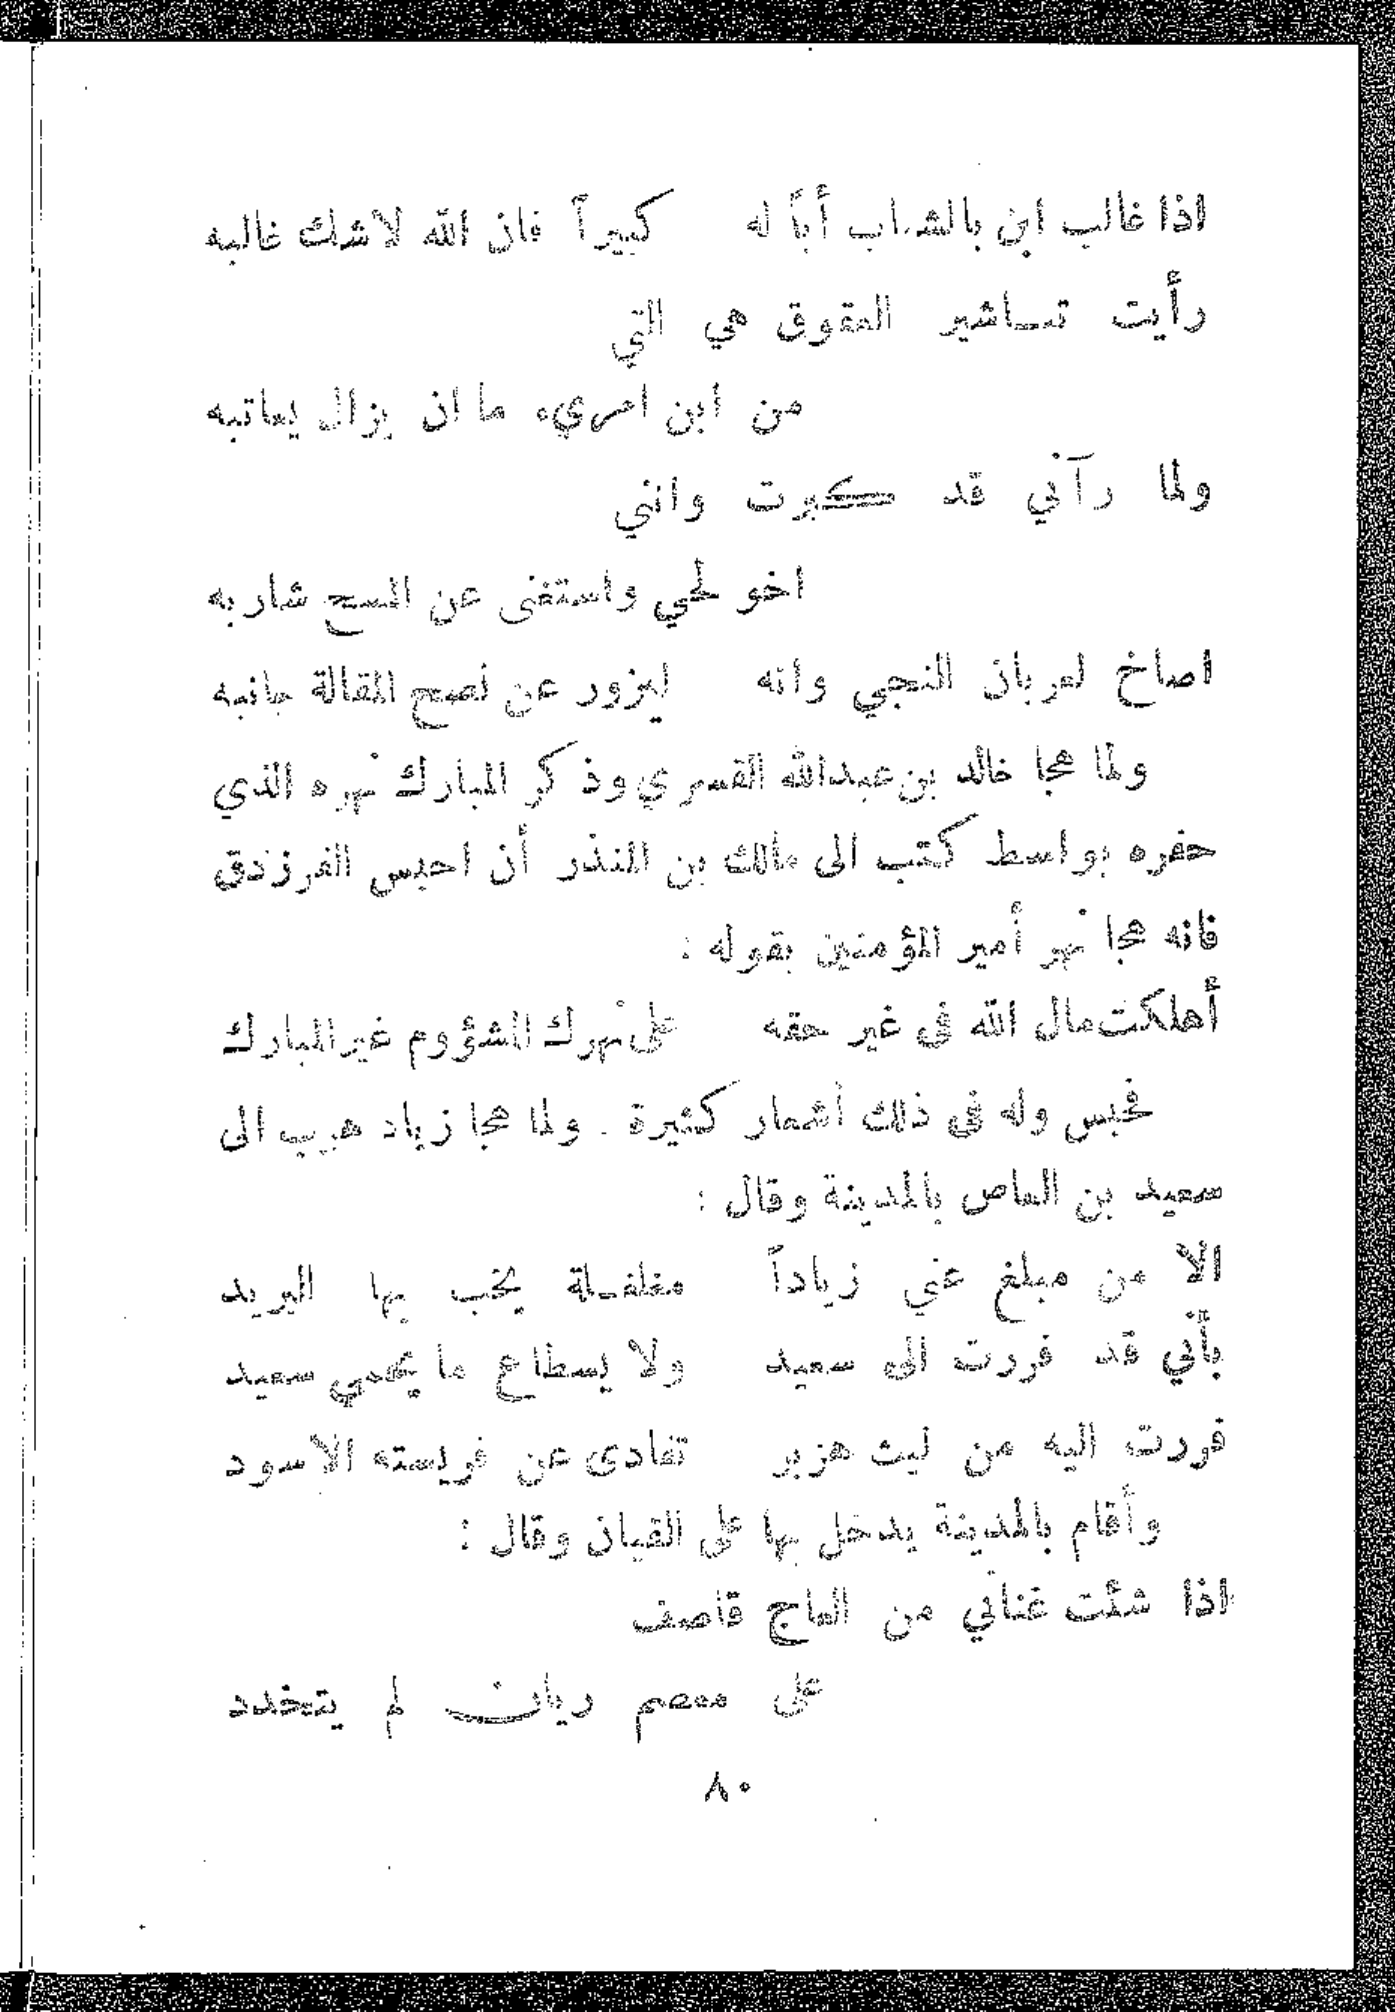 اذا غالب ابن بالشباب أباً له كبيراً فان الله لاشك غالبه
رأيت تباشير العقوق هي التي
من ابن امريء ما ان يزال يعاتبه
ولما رآني قد كبرت وانني
اخو لحي واستغنى عن المسح شاربه
اصاخ لعربان النجي وانه ليزور عن نصح المقالة جانبه
ولما هجا خالد بن عبدالله القسري وذكر المبارك نهره الذي
حفره بواسط كتب الى مالك بن المنذر أن احبس الفرزدق
فانه هجا نهر أمير المؤمنين بقوله :
أهلكت مال الله في غير حقه على نهرك المشؤوم غير المبارك
فحبس وله في ذلك أشعار كثيرة . ولما هجا زياد هرب الى
سعيد بن العاص بالمدينة وقال :
الا من مبلغ عني زياداً مغلغلة يخب بها البريد
بأني قد فررت الى سعيد ولا يسطاع ما يحمي سعيد
فررت اليه من ليث هزبر تفادى عن فريسته الاسود
وأقام بالمدينة يدخل بها على القيان وقال :
اذا شئت غناني من العاج قاصف
على معصم ريان لم يتخدد
٨٠